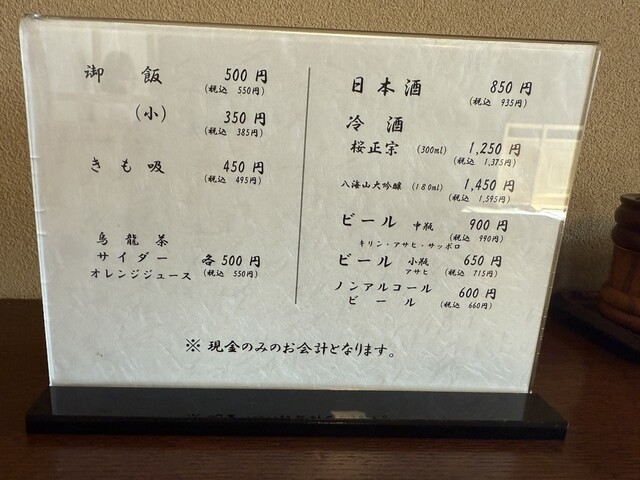 御飯 500円
(税込 550円)
(小) 350円
(税込 385円)
きも吸 450円
(税込 495円)
烏龍茶
サイダー 各500円
オレンジジュース (税込 550円)
日本酒 850円
(税込 935円)
冷酒
桜正宗 (300ml) 1,250円
(税込 1,375円)
八海山大吟醸 (180ml) 1,450円
(税込 1,595円)
ビール 中瓶 900円
(税込 990円)
キリン・アサヒ・サッポロ
ビール 小瓶 650円
アサヒ (税込 715円)
ノンアルコール 600円
ビール (税込 660円)
※ 現金のみのお会計となります。